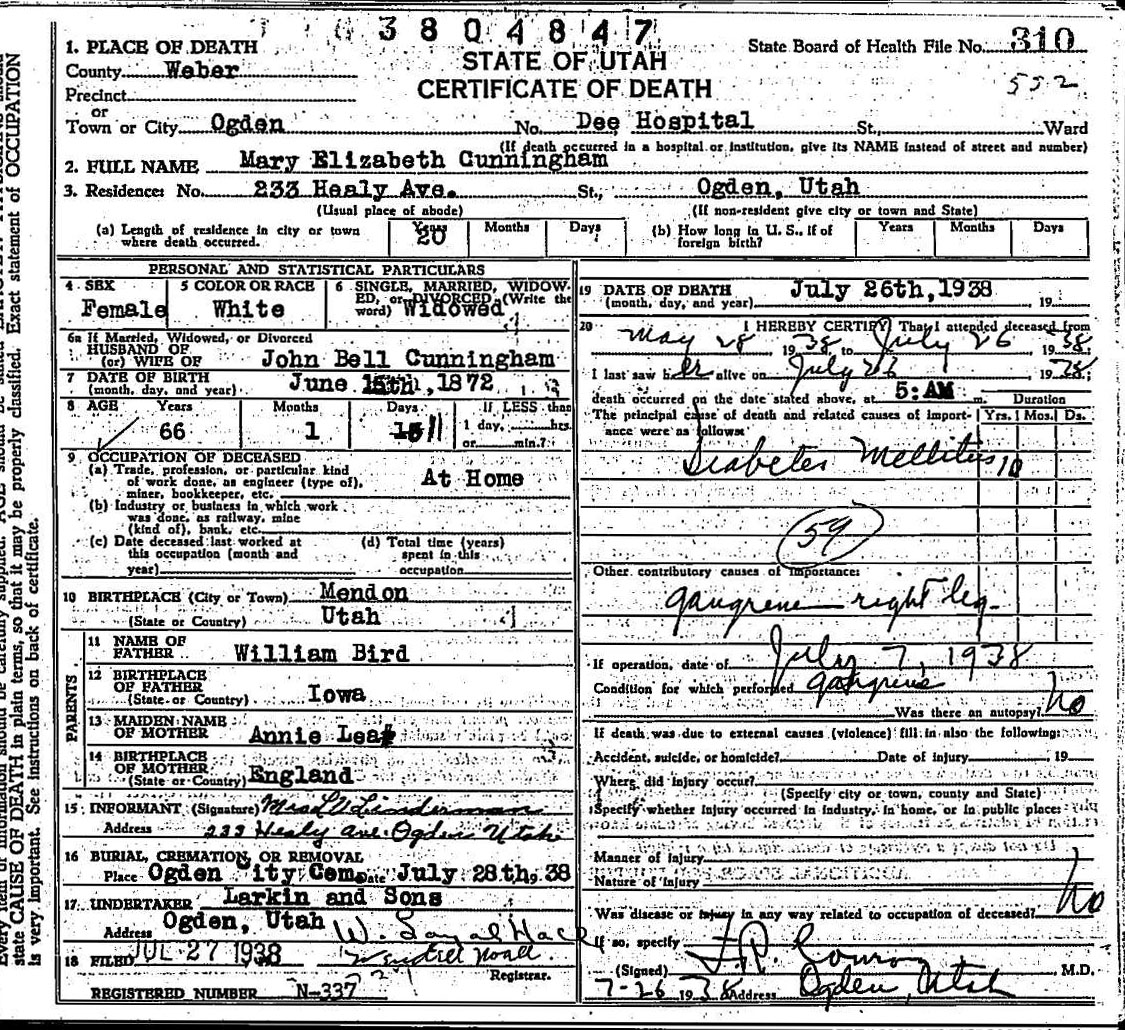 3804847
1. PLACE OF DEATH
STATE OF UTAH
State Board of Health File No. 310
County Weber
CERTIFICATE OF DEATH
552
Precinct
or
Town or City Ogden No. Dee Hospital St., Ward
(If death occurred in a hospital or institution, give its NAME instead of street and number)
2. FULL NAME Mary Elizabeth Cunningham
3. Residence: No. 233 Healy Ave. St., Ogden, Utah
(Usual place of abode) (If non-resident give city or town and State)
(a) Length of residence in city or town where death occurred. Years 20 Months Days
(b) How long in U. S., if of foreign birth? Years Months Days
PERSONAL AND STATISTICAL PARTICULARS
4 SEX Female
5 COLOR OR RACE White
6 SINGLE, MARRIED, WIDOWED, or DIVORCED (Write the word) Widowed
6a If Married, Widowed, or Divorced
HUSBAND OF
(or) WIFE OF John Bell Cunningham
7 DATE OF BIRTH
(month, day, and year) June 15th, 1872
8 AGE Years 66 Months 1 Days 11 If LESS than 1 day, hrs. or min.?
9 OCCUPATION OF DECEASED
(a) Trade, profession, or particular kind
of work done, as engineer (type of),
miner, bookkeeper, etc. At Home
(b) Industry or business in which work
was done, as railway, mine
(kind of), bank, etc.
(c) Date deceased last worked at
this occupation (month and
year)
(d) Total time (years)
spent in this
occupation
10 BIRTHPLACE (City or Town) Mendon
(State or Country) Utah
PARENTS
11 NAME OF FATHER William Bird
12 BIRTHPLACE OF FATHER
(State or Country) Iowa
13 MAIDEN NAME OF MOTHER Annie Lea
14 BIRTHPLACE OF MOTHER
(State or Country) England
15 INFORMANT (Signature) Linderman
Address 233 Healy Ave. Ogden Utah
16 BURIAL, CREMATION, OR REMOVAL
Place Ogden City Cem. Date July 28th, 38
17 UNDERTAKER Larkin and Sons
Address Ogden, Utah
18 FILED JUL 27 1938
Registrar.
REGISTERED NUMBER N-337
19 DATE OF DEATH
(month, day, and year) July 26th, 1938 19
20 I HEREBY CERTIFY That I attended deceased from
May 28 1938 to July 26 1938;
I last saw her alive on July 26 1938;
death occurred on the date stated above, at 5: AM m. Duration
The principal cause of death and related causes of importance were as follows: Yrs. Mos. Ds.
Diabetes Mellitus 10
59
Other contributory causes of importance:
gangrene right leg
If operation, date of July 7, 1938
Condition for which performed gangrene
Was there an autopsy? No
If death was due to external causes (violence) fill in also the following:
Accident, suicide, or homicide? Date of injury 19
Where did injury occur?
(Specify city or town, county and State)
Specify whether injury occurred in industry, in home, or in public place:
Manner of injury
Nature of injury
Was disease or injury in any way related to occupation of deceased? No
If so, specify
(Signed) M.D.
7-26 1938 Address Ogden, Utah
state CAUSE OF DEATH in plain terms, so that it may be properly classified. Exact statement of OCCUPATION
is very important. See instructions on back of certificate.